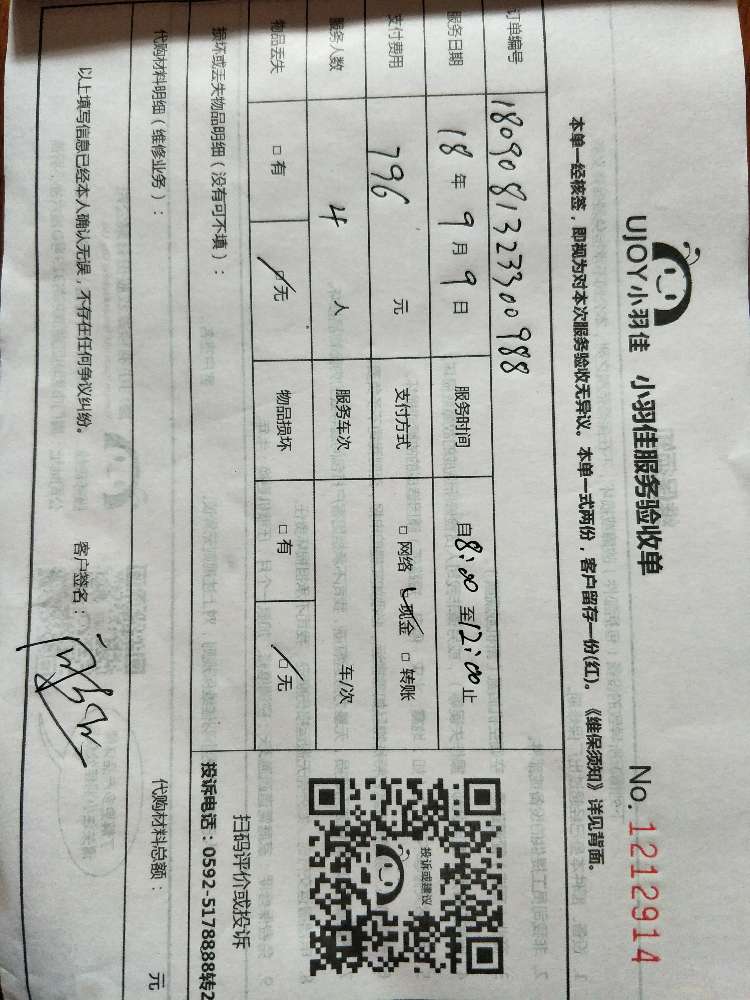 UJOY小羽佳 小羽佳服务验收单 No. 1212914
本单一经核签，即视为对本次服务验收无异议。本单一式两份，客户留存一份(红)。《维保须知》详见背面。
订单编号 1809081323300988
服务日期 18 年 9 月 9 日 服务时间 自 8:00 至 12:00 止
支付费用 796 元 支付方式 □ 网络 □ 现金 □ 转账
服务人数 4 人 服务车次 车/次
物品丢失 □ 有 □ 无 物品损坏 □ 有 □ 无
投诉或建议
扫码评价或投诉
投诉电话：0592-5178888转2
损坏或丢失物品明细（没有可不填）：
代购材料明细（维修业务）： 代购材料总额： 元
以上填写信息已经本人确认无误，不存在任何争议纠纷。 客户签名：